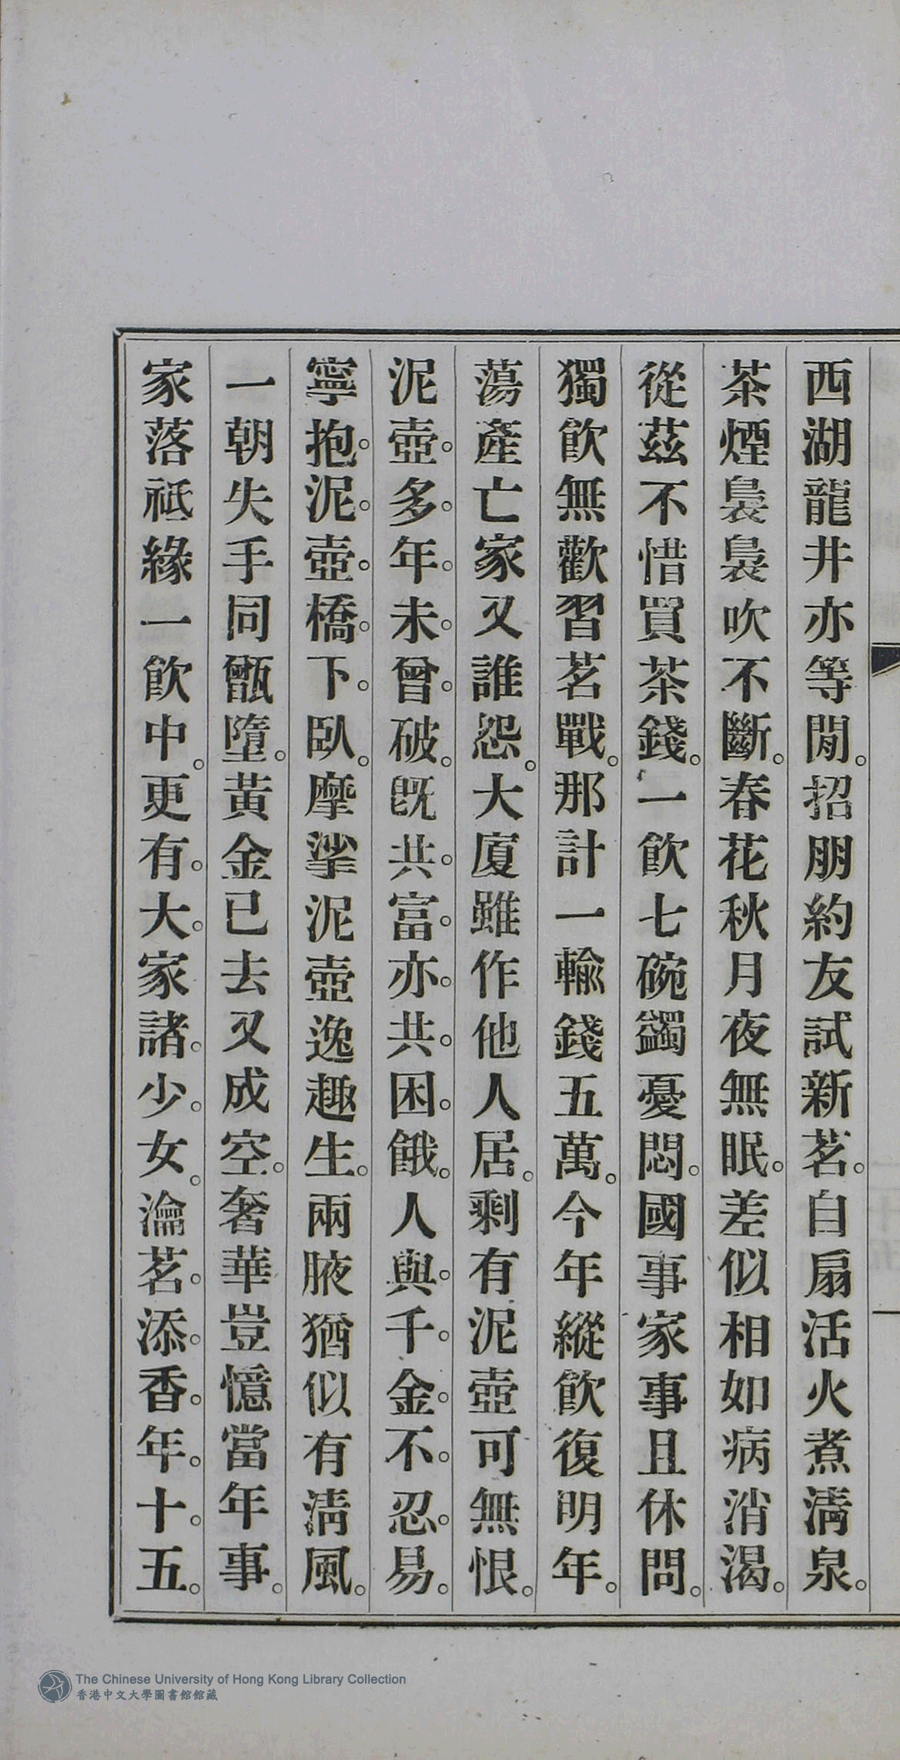 西湖龍井亦等閒。招朋約友試新茗。自扇活火煮清泉。
茶煙裊裊吹不斷。春花秋月夜無眠。差似相如病消渴。
從茲不惜買茶錢。一飲七碗蠲憂悶。國事家事且休問。
獨飲無歡習茗戰。那計一輸錢五萬。今年縱飲復明年。
蕩產亡家又誰怨。大廈雖作他人居。剩有泥壺可無恨。
泥壺。多。年。未。曾。破。旣共。富。亦。共。困。餓。人與。千。金。不。忍。易。
寧抱。泥。壺。橋。下。臥。摩挲泥壺逸趣生。兩腋猶似有清風。
一朝失手同甑墮。黃金已去又成空。奢華豈憶當年事。
家落祗緣一飲中。更有。大。家諸。少。女。瀹茗。添。香。年。十。五。
The Chinese University of Hong Kong Library Collection
香港中文大學圖書館館藏